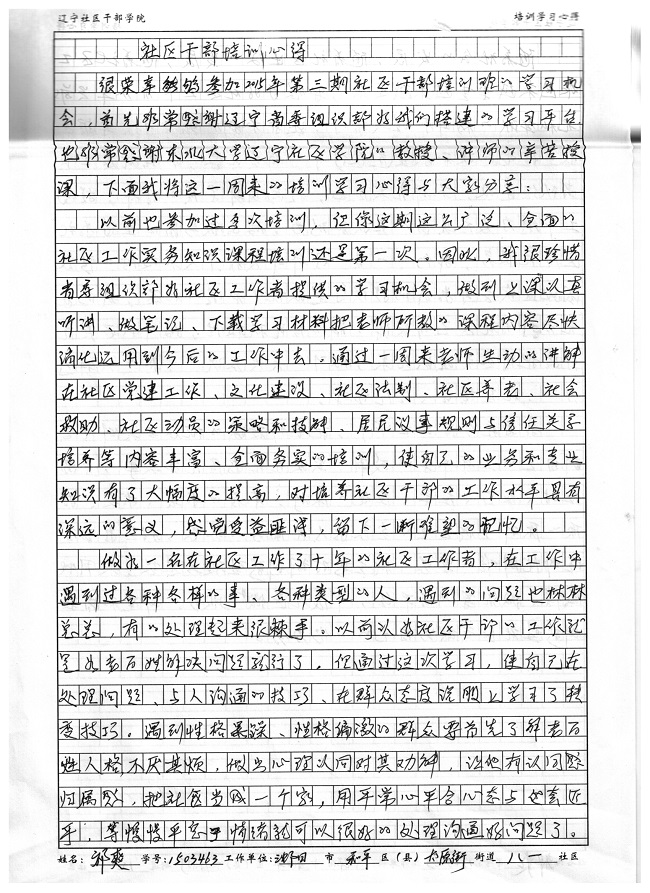 辽宁社区干部学院 培训学习心得
社区干部培训心得
很荣幸能够参加2015年第三期社区干部培训班的学习机
会，首先非常感谢辽宁省委组织部为我们搭建的学习平台，
也非常感谢东北大学辽宁社区学院的教授、讲师的辛苦授
课，下面我将这一周来的培训学习心得与大家分享：
以前也参加过多次培训，但像这期这么广泛、全面的
社区工作实务知识课程培训还是第一次。因此，我很珍惜
省委组织部为社区工作者提供的学习机会，做到上课认真
听讲、做笔记、下载学习材料把老师所教的课程内容尽快
消化运用到今后的工作中去。通过一周来老师生动的讲解
在社区党建工作、文化建设、社区法制、社区养老、社会
救助、社区动员的策略和技能、居民议事规则与信任关系
培养等内容丰富、全面务实的培训，使自己的业务和专业
知识有了大幅度的提高，对培养社区干部的工作水平具有
深远的意义，感觉受益匪浅，留下一断难忘的记忆。
做为一名在社区工作了十年的社区工作者，在工作中
遇到过各种各样的事、各种类型的人，遇到的问题也林林
总总，有的处理起来很棘手。以前以为社区干部的工作就
是为老百姓解决问题就行了，但通过这次学习，使自己在
处理问题、与人沟通的技巧、在群众态度说服上学习了转
变技巧。遇到性格暴躁、性格偏激的群众要首先了解老百
姓人格不厌其烦，做出心理认同对其劝解，让他有认同感
归属感，把社区当成一个家，用平常心平合心态与他套近
乎，等慢慢平息了情绪就可以很好的处理沟通好问题了。
姓名：祁爽 学号：1503463 工作单位：沈阳 市 和平 区（县） 长白街 街道 八一 社区